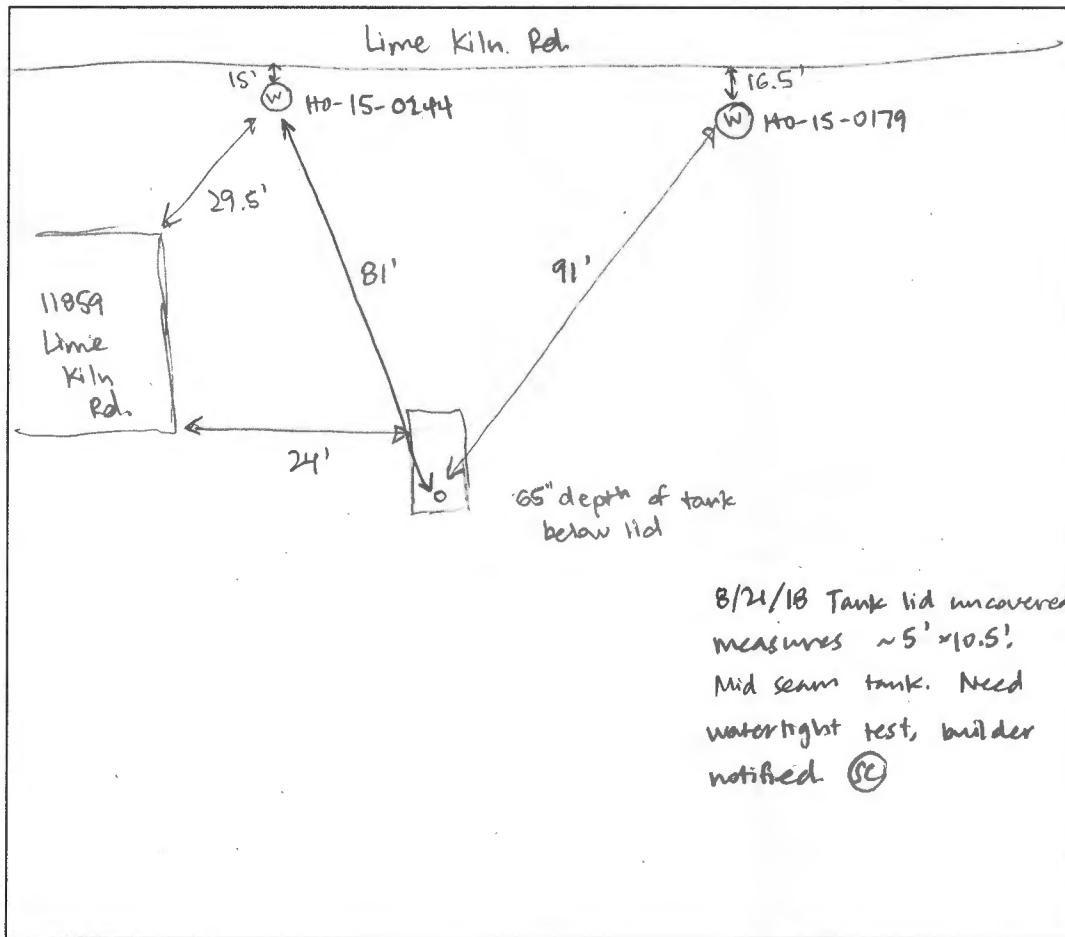 Lime Kiln. Rd.
15'
16.5'
W HO-15-0244
W HO-15-0179
29.5'
81'
91'
11859
Lime
Kiln
Rd.
24'
65" depth of tank
below lid
8/21/18 Tank lid uncovered
measures ~5' x10.5'.
Mid seam tank. Need
watertight test, builder
notified. SC